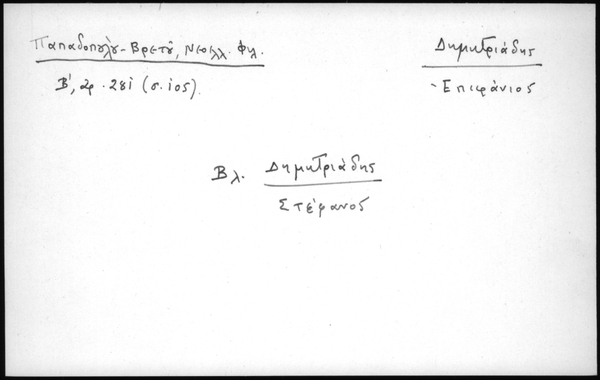 Παπαδοπούλου-Βρετοῦ, Νεοελλ. Φιλ.
Β', ἀρ. 281 (σ. 105).
Δημητριάδης
Ἐπιφάνιος
Βλ. Δημητριάδης
Στέφανος